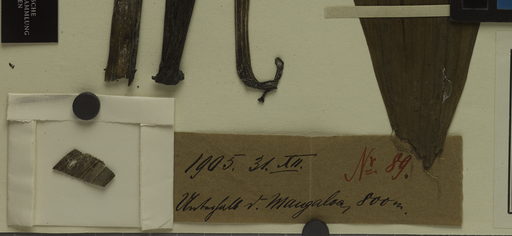 ISCHE
SAMMLUNG
EN
1905. 31. XII. Nr. 89.
Unterhalb d. Mangaloa, 800 m.